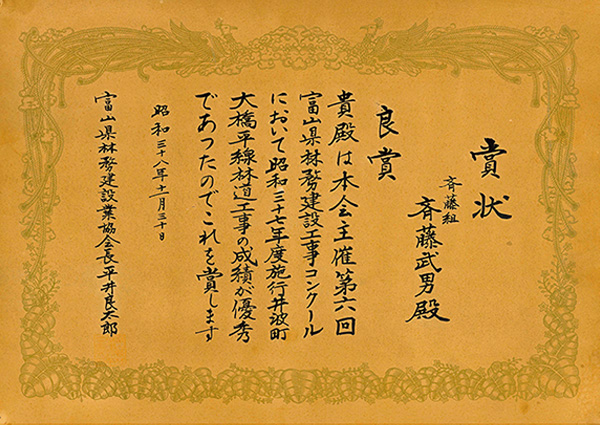 賞状
斉藤組
斉藤武男殿
良賞
貴殿は本会主催第六回
富山県林務建設工事コンクール
において昭和三十七年度施行井波町
大橋平線林道工事の成績が優秀
であつたのでこれを賞します
昭和三十八年十一月三十日
富山県林務建設業協会長平井良太郎